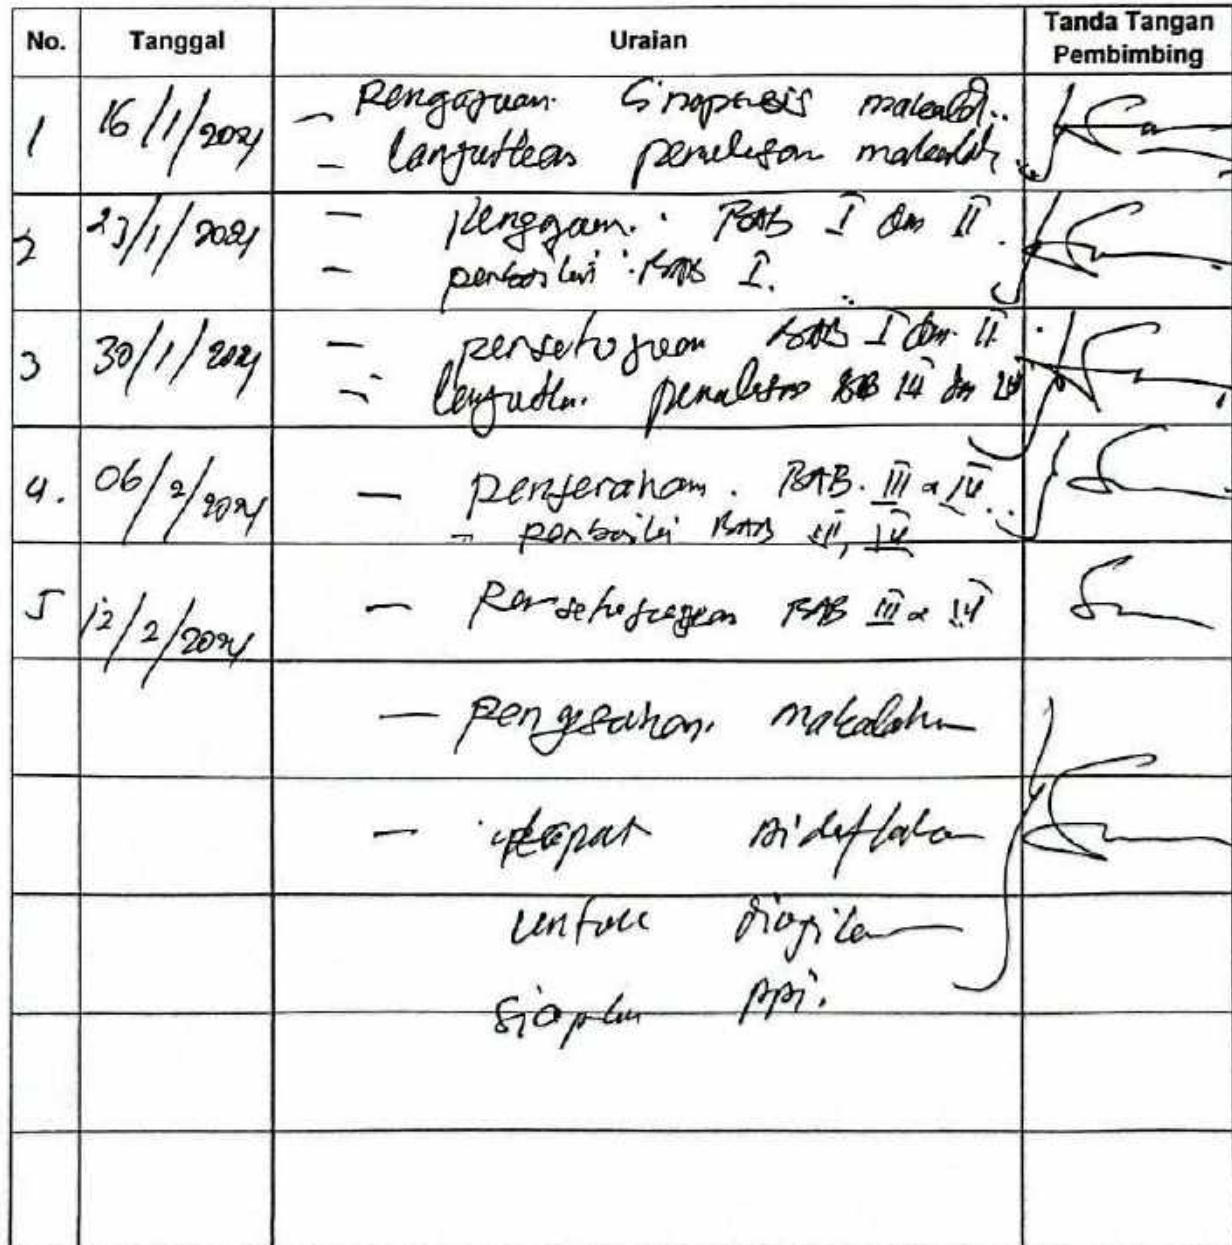 No. Tanggal Uraian Tanda Tangan Pembimbing
1 16/1/2021 - Pengajuan Sinopsis makalah
- Lanjutkan penulisan makalah
2 23/1/2021 - Pengajuan BAB I dan II
- perbaiki BAB I.
3 30/1/2021 - persetujuan BAB I dan II
- lanjutkan penulisan BAB III dan IV
4. 06/2/2021 - penyerahan BAB. III & IV
- perbaiki BAB III, IV
5 12/2/2021 - Persetujuan BAB III & IV
- pengesahan makalah
- dapat didaftarkan
untuk diujikan
siapkan PPT.